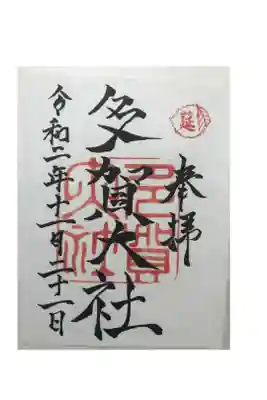 奉拝
延
多賀大社
多賀大社
令和二年十一月二十一日